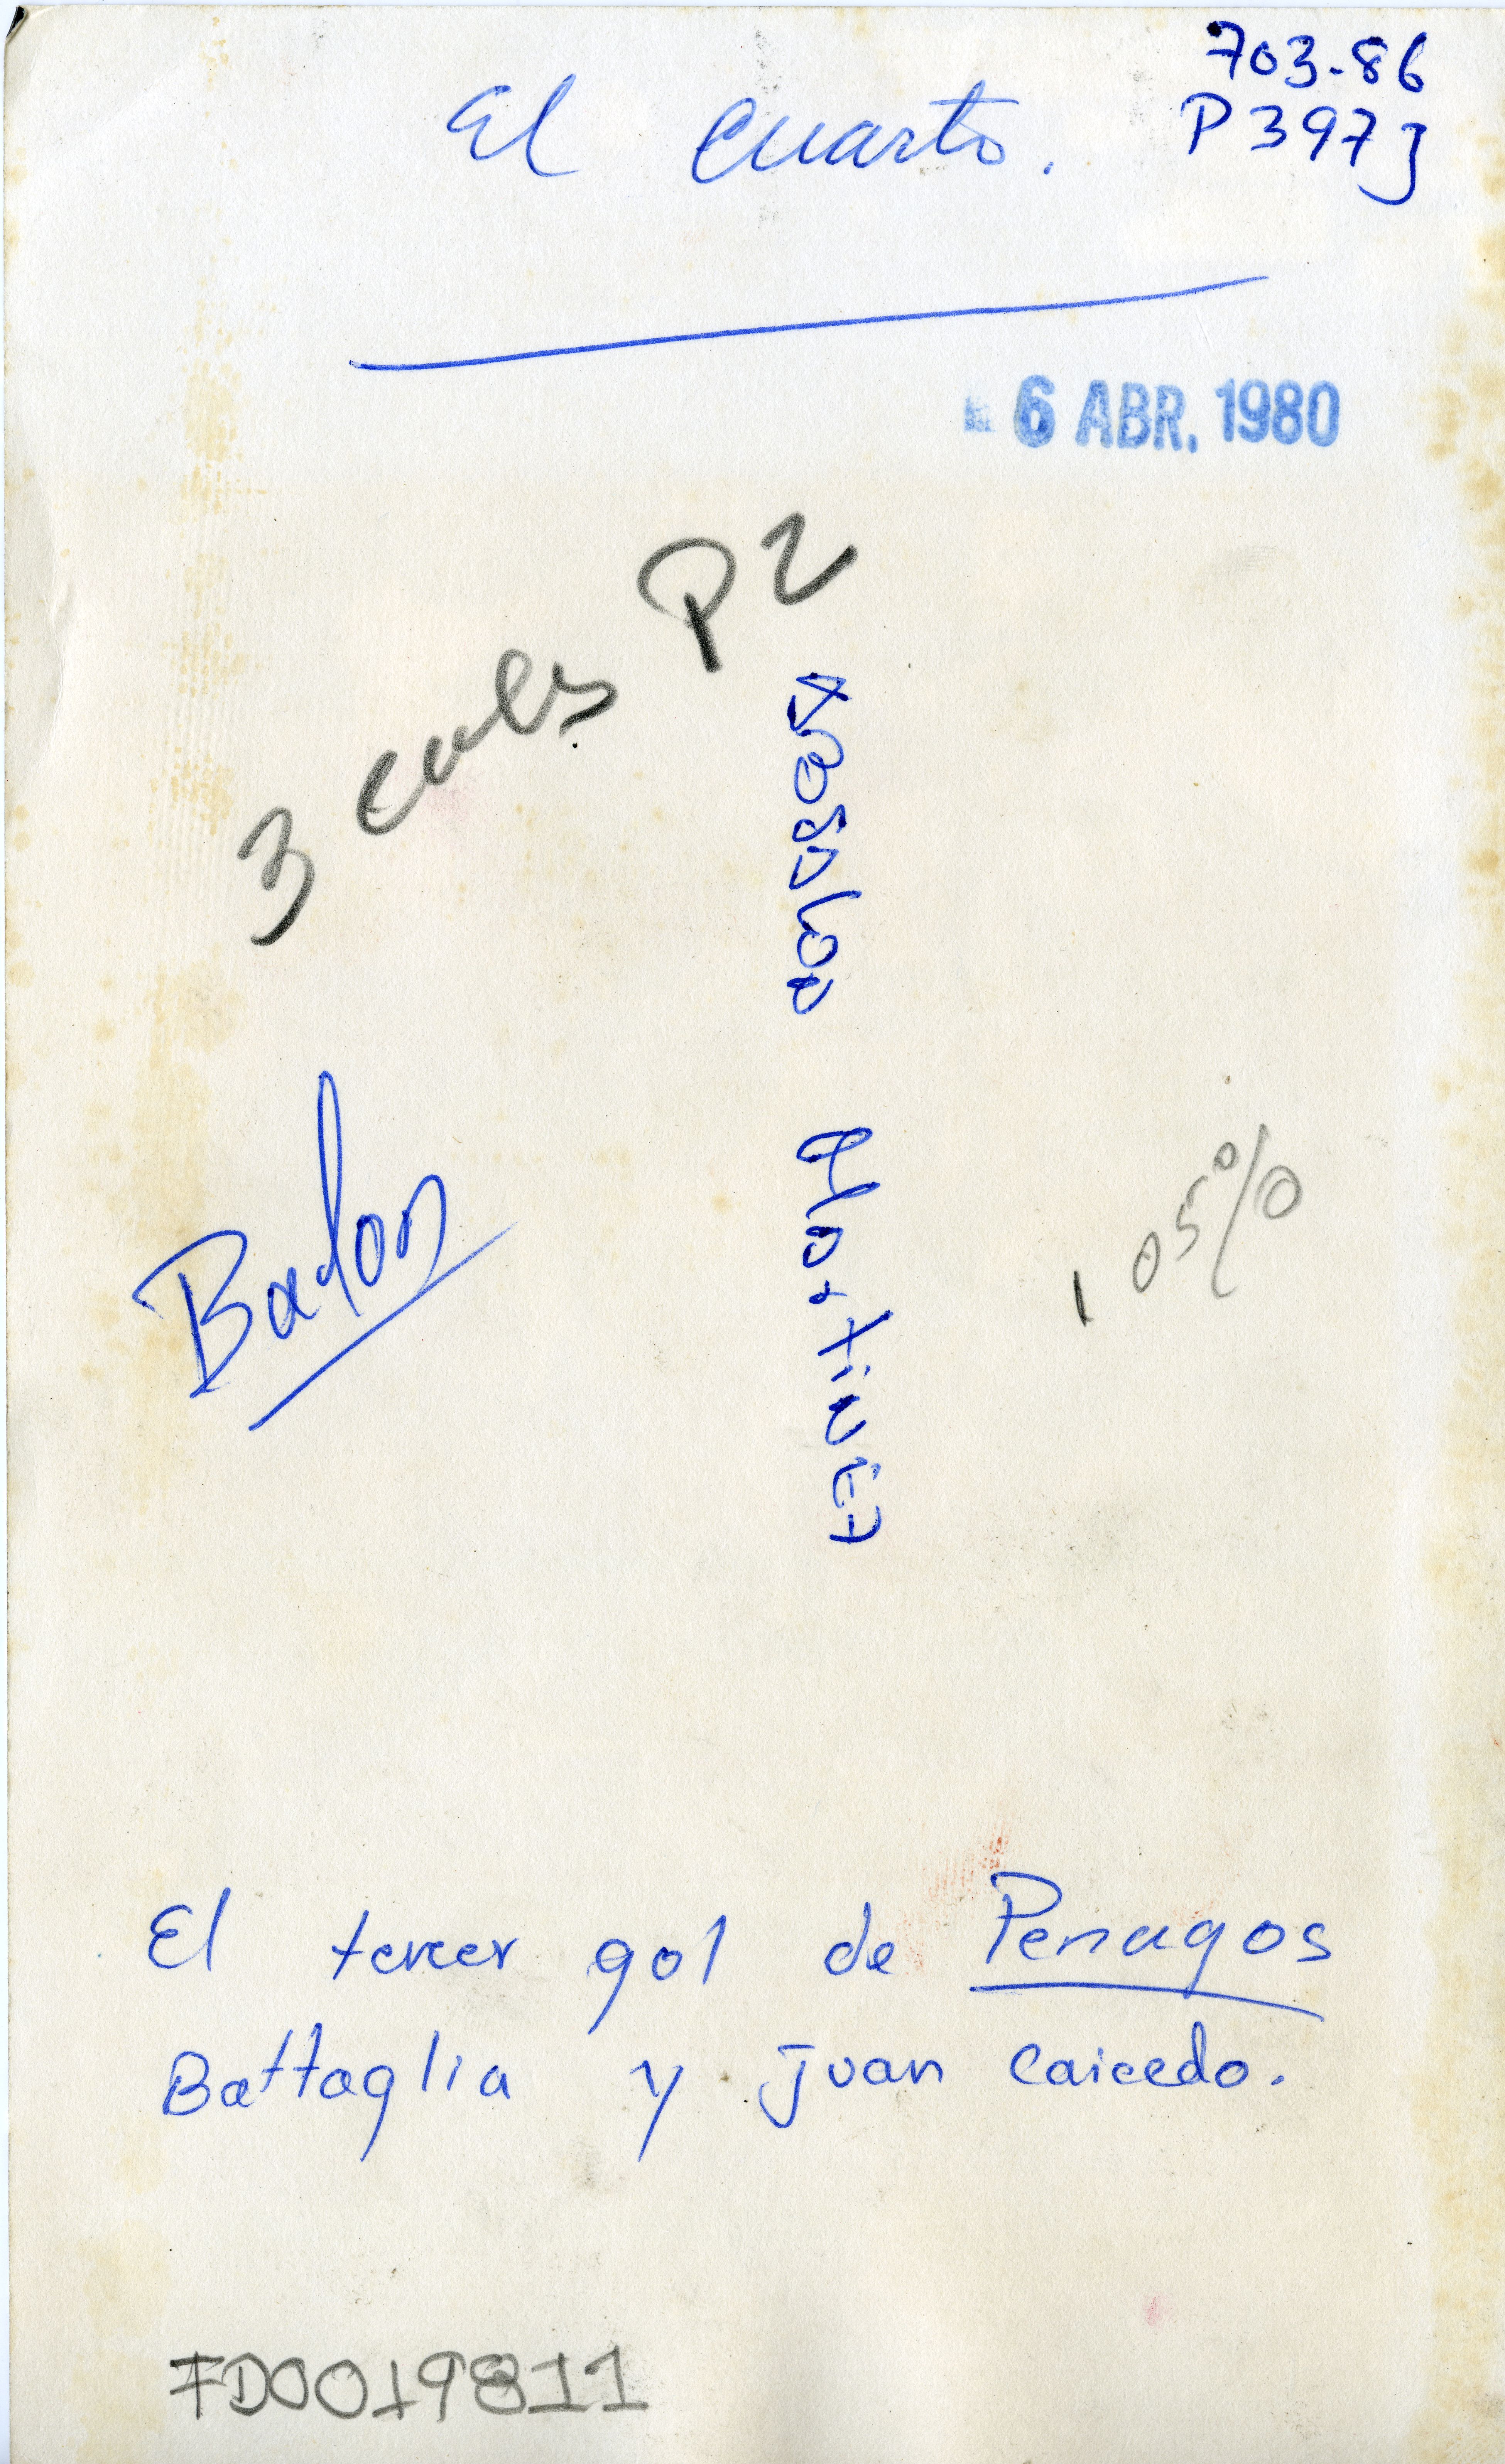 703-86
P397J
El cuarto.
6 ABR. 1980
3 cols P2
Martinez
Balon
105%
El tercer gol de Penagos
Battaglia y Juan Caicedo.
FD0019811